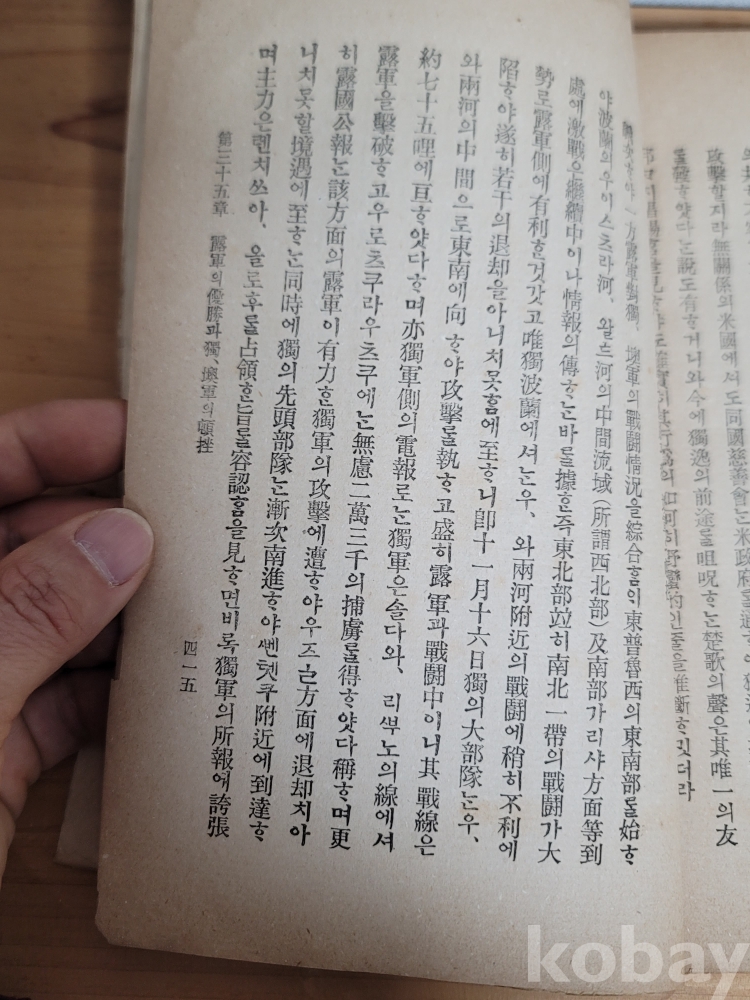 攻擊할지라無關係의米國에서도同國慈善會는米政府를
를發ᄒᆞ얏다는說도有ᄒᆞ거니와今에獨逸의前途를咀呪ᄒᆞ는楚歌의聲은其唯一의友
一方露軍對獨、墺軍의戰鬪情況을綜合ᄒᆞᆷ의東普魯西의東南部를始ᄒᆞ
야波蘭의우이스츠라河、왈ᄯᅳ河의中間流域(所謂西北部)及南部가리샤方面等到
處에激戰을繼續中이나情報의傳ᄒᆞ는바를據ᄒᆞᆫ즉東北部竝히南北一帶의戰鬪가大
勢로露軍側에有利ᄒᆞᆫ것갓고唯獨波蘭에셔는우、와兩河附近의戰鬪에稍히不利에
陷ᄒᆞ야遂히若干의退却을아니치못ᄒᆞᆷ에至ᄒᆞ니卽十一月十六日獨의大部隊는우、
와兩河의中間으로東南에向ᄒᆞ야攻擊을執ᄒᆞ고盛히露軍과戰鬪中이니其戰線은
約七十五哩에亘ᄒᆞ얏다ᄒᆞ며亦獨軍側의電報로는獨軍은솔다와、리ᄲᅮ노의線에셔
露軍을擊破ᄒᆞ고우로츠쿠라우츠쿠에는無慮二萬三千의捕虜를得ᄒᆞ얏다稱ᄒᆞ며更
히露國公報는該方面의露軍이有力ᄒᆞᆫ獨軍의攻擊에遭ᄒᆞ야우즈ᄯᅳ方面에退却치아
니치못ᄒᆞᆯ境遇에至ᄒᆞ는同時에獨의先頭部隊는漸次南進ᄒᆞ야ᄲᅦᆫ톗쿠附近에到達ᄒᆞ
며主力은렌치쓰아、올로후를占領ᄒᆞᆫ旨를容認ᄒᆞᆷ을見ᄒᆞ면비록獨軍의所報에誇張
第三十五章 露軍의優勝과獨、墺軍의頓挫
四一五
kobay